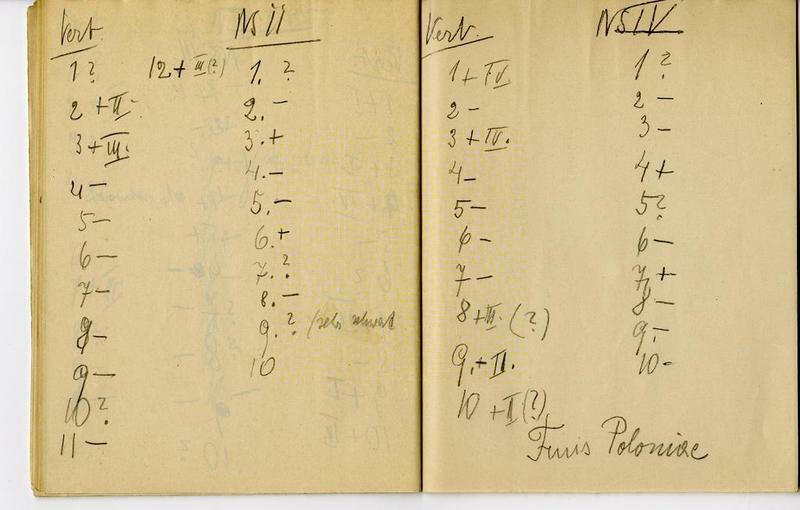 Vert. NS II
1 ? 12 + III (?) 1. ?
2 + II - 2. -
3 + III. 3. +
4 - 4. -
5 - 5. -
6 - 6. +
7 - 7. ?
8 - 8. -
9 - 9. ? (sehr schwach
10 ? 10
11 -
Vert. NS IV
1 + IV 1 ?
2 - 2 -
3 + IV. 3 -
4 - 4 +
5 - 5 ?
6 - 6 -
7 - 7. +
8 + III. (?) 8 -
9. + II. 9. -
10 + II (?) 10 -
Finis Poloniae